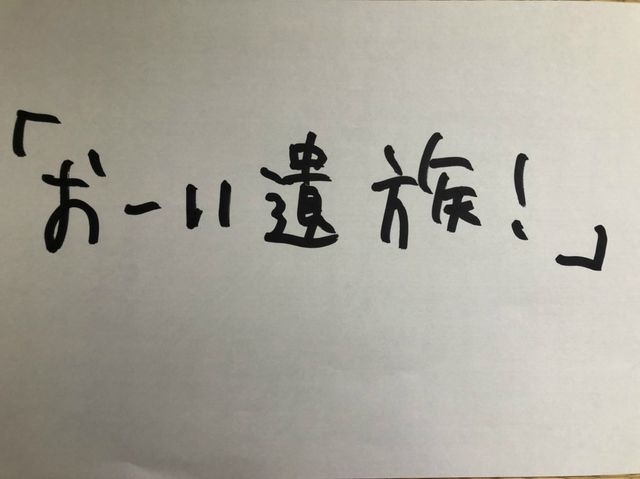 「おーい遺族!」